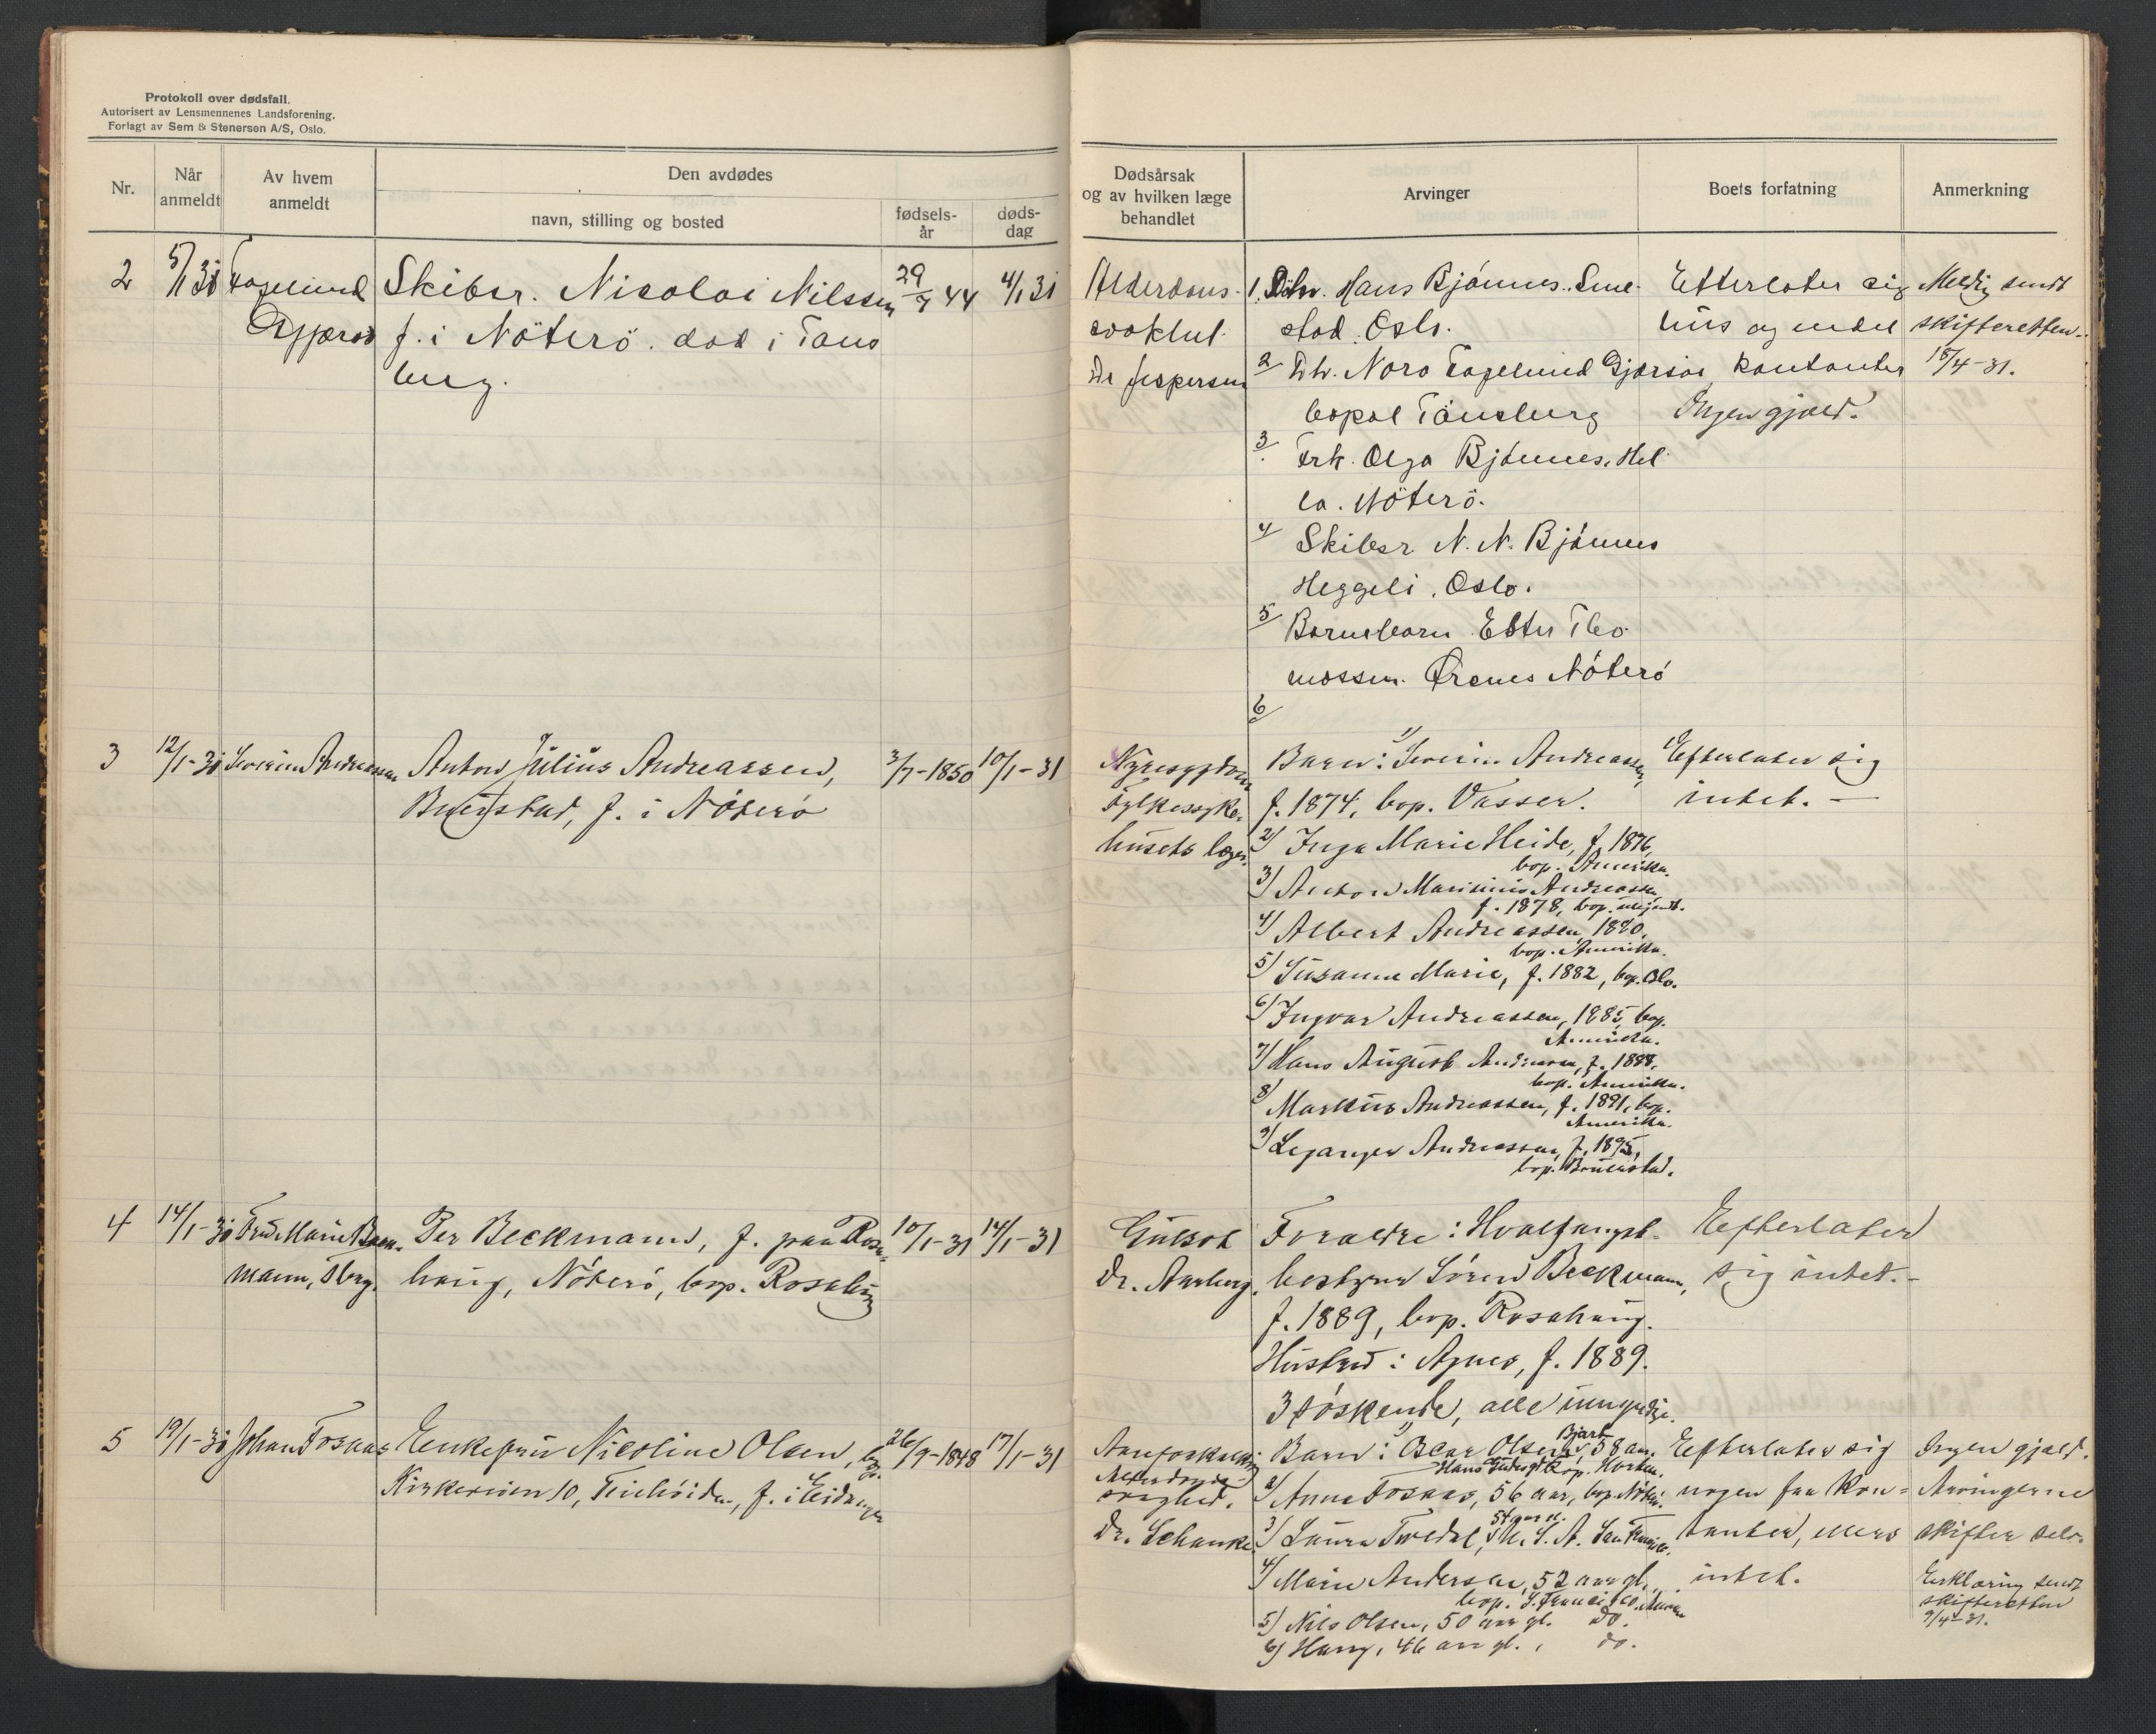 Protokoll over dødsfall.
Autorisert av Lensmennenes Landsforening.
Forlagt av Sem & Stenersen A/S, Oslo.
Nr.
Når anmeldt
Av hvem anmeldt
Den avdødes
navn, stilling og bosted
fødsels-år
døds-dag
Dødsårsak og av hvilken læge behandlet
Arvinger
Boets forfatning
Anmerkning
2
5/1 31
Fagelund
Skibsr. Nicolai Nilssen
f. i Nöterö. död i Töns
berg.
29/7 44
4/1 31
Alderdoms-
svakhet.
Dr Jespersen
1. Hans Bjönnes.
stad. Oslo.
2 Fagelund
bopæl Tönsberg
3 Frk. Olga Bjönnes. Hel
la. Nöterö.
4 Skibsr N. N. Bjönnes
Heggeli. Oslo.
5 Barnebarn Ester Tho
massen. Ørsnes Nöterö
6
Efterlater sig
hus og endel
kontanter
Ingen gjæld.
Meldig sendt
skifteretten.
15/4-31.
3
12/1-31
Severin Andreassen
Anton Julius Andreassen,
f. i Nöterö
3/7-1850
10/1-31
Nyresygdom
Fylkessyke-
husets læger.
Barn: 1) Severin Andreassen,
f. 1874, bop. Vasser.
2) Inga Marie Heide, f. 1876,
bop. Amerika.
3) Anton Marinius Andreassen
f. 1878, bop. ukjendt.
4) Albert Andreassen, 1880,
bop. Amerika.
5) Susanne Marie, f. 1882, bop. Oslo.
6) Ingvar Andreassen, 1885, bop.
Amerika.
7) Hans August Andreassen, f. 1888,
bop. Amerika.
8) Markus Andreassen, f. 1891, bop.
Amerika.
9) Leganger Andreassen, f. 1895,
bop.
Efterlater sig
intet. —
4
14/1-31
Fru Marie Beck-
mann, Tbrg.
Per Beckmann, f. paa Rosa-
haug, Nöterö, bop. Rosahaug
10/1-31
14/1-31
Gulsot
Dr. Aarberg.
Forældre: Hvalfangst-
bestyrer Sören Beckmann,
f. 1889, bop. Rosahaug.
Hustru: Agnes, f. 1889.
3 söskende, alle umyndige.
Efterlater
sig intet.-
5
19/1-31
Johan Fosnas
Enkefru Nicoline Olsen, bop.
Kirkeveien 10, Teiehöiden, f. i Eidanger
26/9-1848
17/1-31
Aareforkalkning
Alderdoms-
svaghed.
Dr. Schanke.
Barn: 1) Oscar Olsen 58 aar.
bop. Horten.
2) Anna Fosnas, 56 aar, bop. Nöterö.
54 aar gl.
3) Laura Tvedal, U. S. A. San Francisco.
4) Marie Andersen, 52 aar gl.,
bop. S. Francisco. Amerika
5) Nils Olsen, 50 aar gl. do.
6) Harry, 46 aar gl., do.
Efterlater sig
nogen faa kon-
tanter, ellers
intet.
Ingen gjæld.
Arvingerne
skifter selv.
Erklæring sendt
skifteretten
9/4-31.